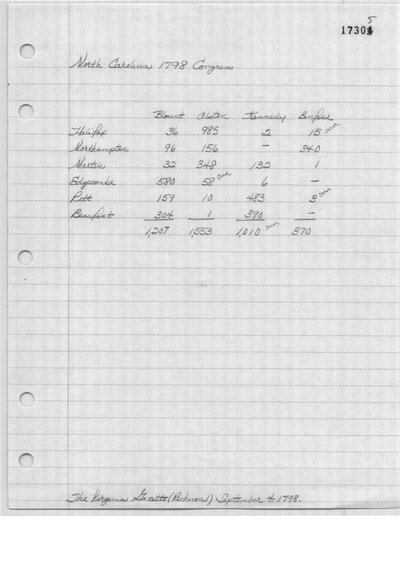 5
1730
North Carolina 1798 Congress
Blount Alston Kennedy
Halifax 36 985 2 15
Northampton 96 156 – 340
Martin 32 348 132 1
Edgcombe 580 58 6 –
Pitt 159 10 483 3
Beaufort 304 1 390 –
1,207 1,553 1,010 370
The Virginia Gazette (Richmond) September 4, 1798.